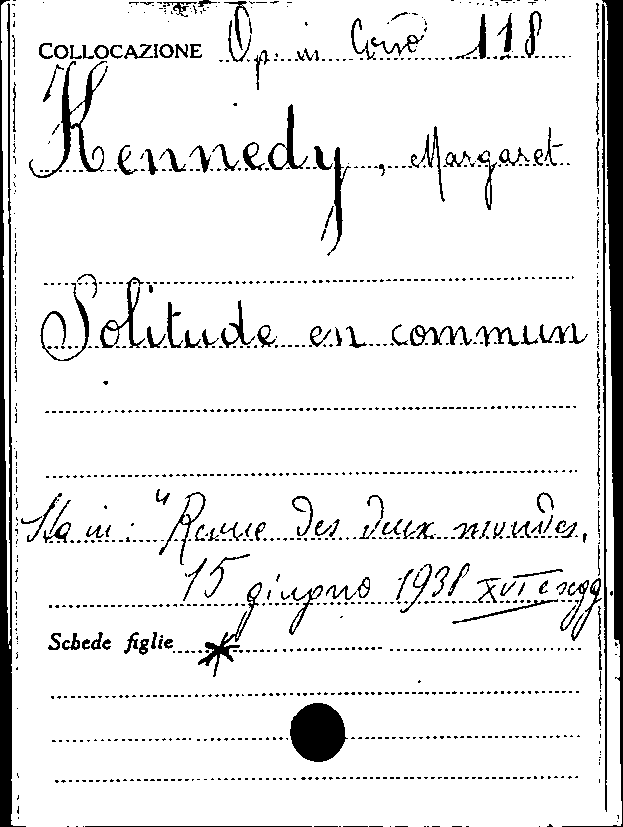 COLLOCAZIONE Op. in Corso 118
Kennedy, Margaret
Solitude en commun
Sta in: "Revue des deux mondes,
15 giugno 1938 XVI e segg.
Schede figlie *